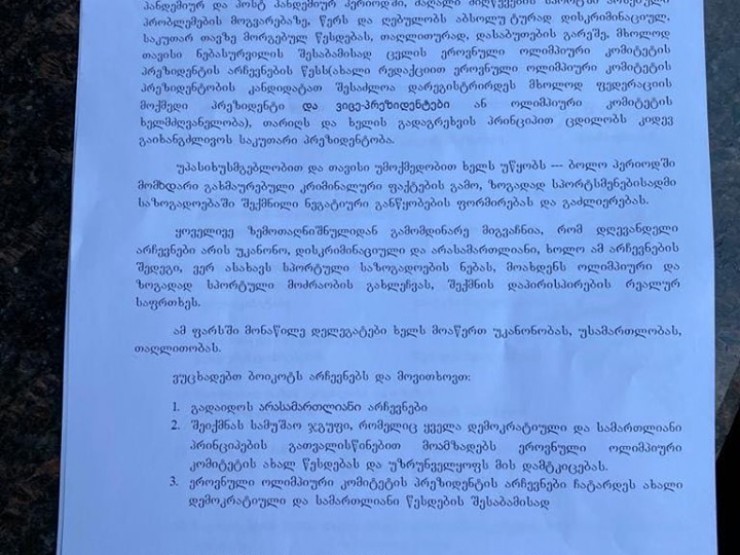 პანდემიურ და პოსტ პანდემიურ პერიოდში, მაღალი მიღწევების სპორტში არსებული
პრობლემების მოგვარებაზე, წერს და ღებულობს აბსოლუტურად დისკრიმინაციულ,
საკუთარ თავზე მორგებულ წესდებას, თაღლითურად, დასაბუთების გარეშე, მხოლოდ
თავისი ნებასურვილის შესაბამისად ცვლის ეროვნული ოლიმპიური კომიტეტის
პრეზიდენტის არჩევნების წესს(ახალი რედაქციით ეროვნული ოლიმპიური კომიტეტის
პრეზიდენტობის კანდიდატად შესაძლოა დარეგისტრირდეს მხოლოდ ფედერაციის
მოქმედი პრეზიდენტი და ვიცე-პრეზიდენტები ან ოლიმპიური კომიტეტის
ხელმძღვანელობა), თარიღს და ხელის გადაგრეხვის პრინციპით ცდილობს კიდევ
გაიხანგძლივოს საკუთარი პრეზიდენტობა.
უპასიხუსმგებლობით და თავისი უმოქმედობით ხელს უწყობს --- ბოლო პერიოდში
მომხდარი გახმაურებული კრიმინალური ფაქტების გამო, ზოგადად სპორტსმენებისადმი
საზოგადოებაში შექმნილი ნეგატიური განწყობების ფორმირებას და გაძლიერებას.
ყოველივე ზემოთაღნიშნულიდან გამომდინარე მიგვაჩნია, რომ დღევანდელი
არჩევნები არის უკანონო, დისკრიმინაციული და არასამართლიანი, ხოლო ამ არჩევნების
შედეგი, ვერ ასახავს სპორტული საზოგადოების ნებას, მოახდენს ოლიმპიური და
ზოგადად სპორტული მოძრაობის გახლეჩვას, შექმნის დაპირისპირების რეალურ
საფრთხეს.
ამ ფარსში მონაწილე დელეგატები ხელს მოაწერთ უკანონობას, უსამართლობას,
თაღლითობას.
ვუცხადებთ ბოიკოტს არჩევნებს და მოვითხოვთ:
1. გადაიდოს არასამართლიანი არჩევნები
2. შეიქმნას სამუშაო ჯგუფი, რომელიც ყველა დემოკრატიული და სამართლიანი
პრინციპების გათვალისწინებით მოამზადებს ეროვნული ოლიმპიური
კომიტეტის ახალ წესდებას და უზრუნველყოფს მის დამტკიცებას.
3. ეროვნული ოლიმპიური კომიტეტის პრეზიდენტის არჩევნები ჩატარდეს ახალი
დემოკრატიული და სამართლიანი წესდების შესაბამისად